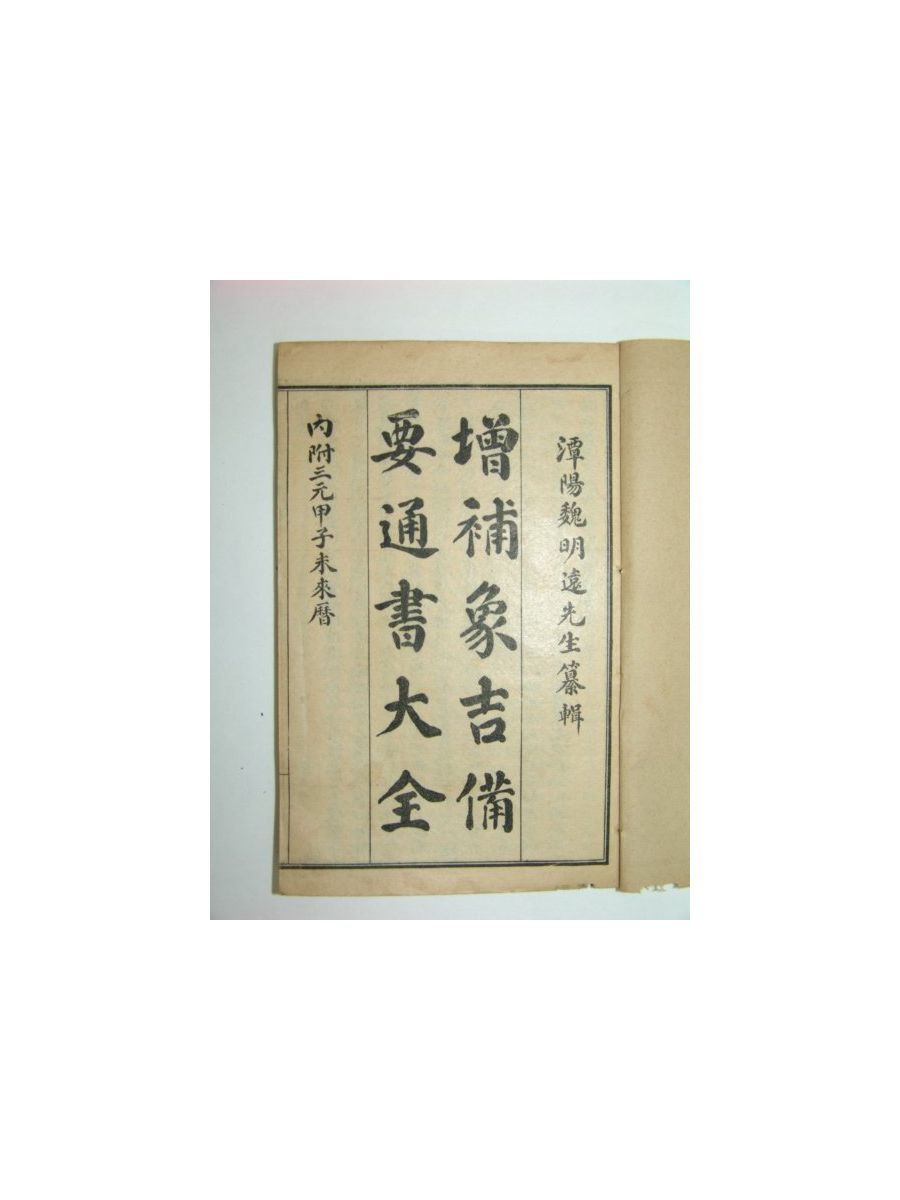 潭陽魏明遠先生纂輯
增補象吉備
要通書大全
內附三元甲子未來曆